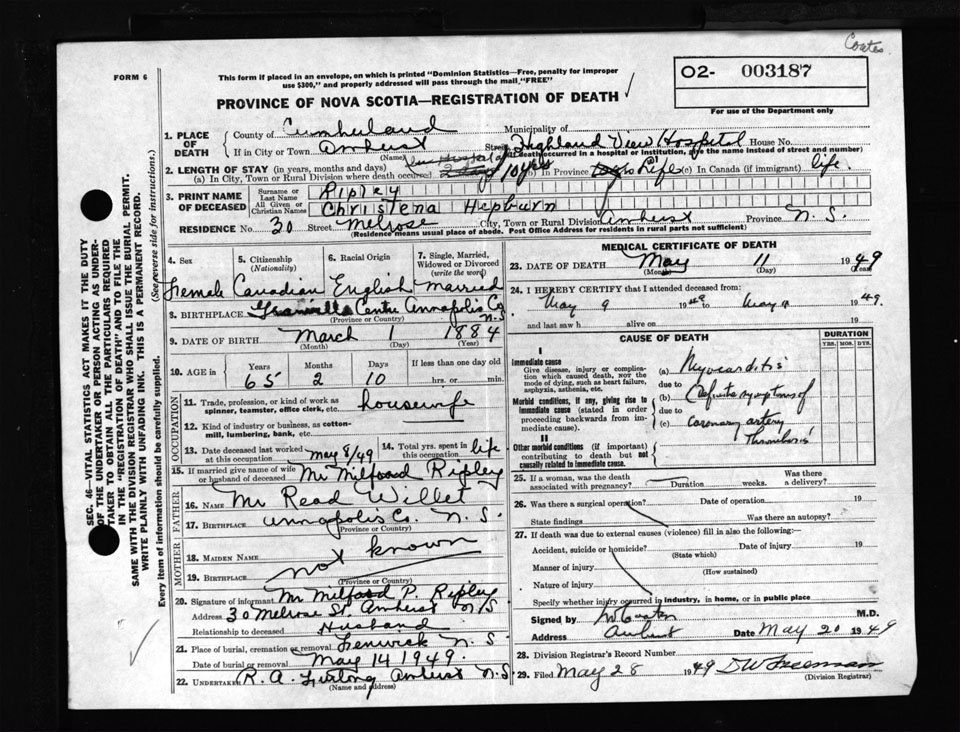 Coates
FORM 6
This form if placed in an envelope, on which is printed "Dominion Statistics—Free, penalty for improper
use $300," and properly addressed will pass through the mail, "FREE"
PROVINCE OF NOVA SCOTIA—REGISTRATION OF DEATH
O2- 003187
For use of the Department only
1. PLACE OF DEATH
County of Cumberland Municipality of
If in City or Town Amherst Street Highland View Hospital House No.
(Name) (If death occurred in a hospital or institution, give the name instead of street and number)
2. LENGTH OF STAY (in years, months and days)
(a) In City, Town or Rural Division where death occurred 10 yrs (b) In Province Life (c) In Canada (if immigrant) life.
3. PRINT NAME OF DECEASED
Surname or Last Name Ripley
All Given or Christian Names Christena Hepburn
RESIDENCE No. 30 Street Melrose City, Town or Rural Division Amherst Province N. S.
(Residence means usual place of abode. Post Office Address for residents in rural parts not sufficient)
4. Sex
5. Citizenship (Nationality)
6. Racial Origin
7. Single, Married, Widowed or Divorced (write the word)
Female Canadian English Married
8. BIRTHPLACE Granville Centre Annapolis Co N.S.
(Province or Country)
9. DATE OF BIRTH March 1 1884
(Month) (Day) (Year)
10. AGE in Years Months Days If less than one day old
65 2 10 hrs. or min.
OCCUPATION
11. Trade, profession, or kind of work as spinner, teamster, office clerk, etc. housewife
12. Kind of industry or business, as cotton-mill, lumbering, bank, etc.
13. Date deceased last worked at this occupation May 8/49
14. Total yrs. spent in this occupation life.
15. If married give name of wife or husband of deceased Mr Milford Ripley
FATHER
16. NAME Mr Read Willet
17. BIRTHPLACE Annapolis Co. N. S.
(Province or Country)
MOTHER
18. MAIDEN NAME
19. BIRTHPLACE not known
(Province or Country)
20. Signature of informant Mr Milford P. Ripley
Address 30 Melrose St. Amherst N S
Relationship to deceased Husband
21. Place of burial, cremation or removal Fenwick N. S.
Date of burial or removal May 14 1949.
22. UNDERTAKER R. A. Furlong Amherst N.S.
(Name and address)
MEDICAL CERTIFICATE OF DEATH
23. DATE OF DEATH May 11 1949
(Month) (Day) (Year)
24. I HEREBY CERTIFY that I attended deceased from:
May 9 1949 to May 11 1949.
and last saw h alive on 19
CAUSE OF DEATH
DURATION
YRS. MOS. DYS.
I
Immediate cause
Give disease, injury or complication which caused death, NOT the mode of dying, such as heart failure, asphyxia, asthenia, etc.
(a) Myocarditis
due to
Morbid conditions, if any, giving rise to immediate cause (stated in order proceeding backwards from immediate cause).
(b) Definite symptoms of
due to
(c) coronary artery
Thrombosis
II
Other morbid conditions (if important) contributing to death but not causally related to immediate cause.
25. If a woman, was the death associated with pregnancy? Duration weeks. Was there a delivery?
26. Was there a surgical operation? Date of operation 19
State findings Was there an autopsy?
27. If death was due to external causes (violence) fill in also the following:—
Accident, suicide or homicide? Date of injury 19
(State which)
Manner of injury
(How sustained)
Nature of injury
Specify whether injury occurred in industry, in home, or in public place
Signed by Coates M.D.
Address Amherst Date May 20 1949
28. Division Registrar's Record Number
29. Filed May 28 1949 D W Freeman
(Division Registrar)
SEC. 46—VITAL STATISTICS ACT MAKES IT THE DUTY
OF THE UNDERTAKER OR PERSON ACTING AS UNDER-
TAKER TO OBTAIN ALL THE PARTICULARS REQUIRED
IN THE "REGISTRATION OF DEATH" AND TO FILE THE
SAME WITH THE DIVISION REGISTRAR WHO SHALL ISSUE THE BURIAL PERMIT.
WRITE PLAINLY WITH UNFADING INK. THIS IS A PERMANENT RECORD.
Every item of information should be carefully supplied. (See reverse side for instructions.)